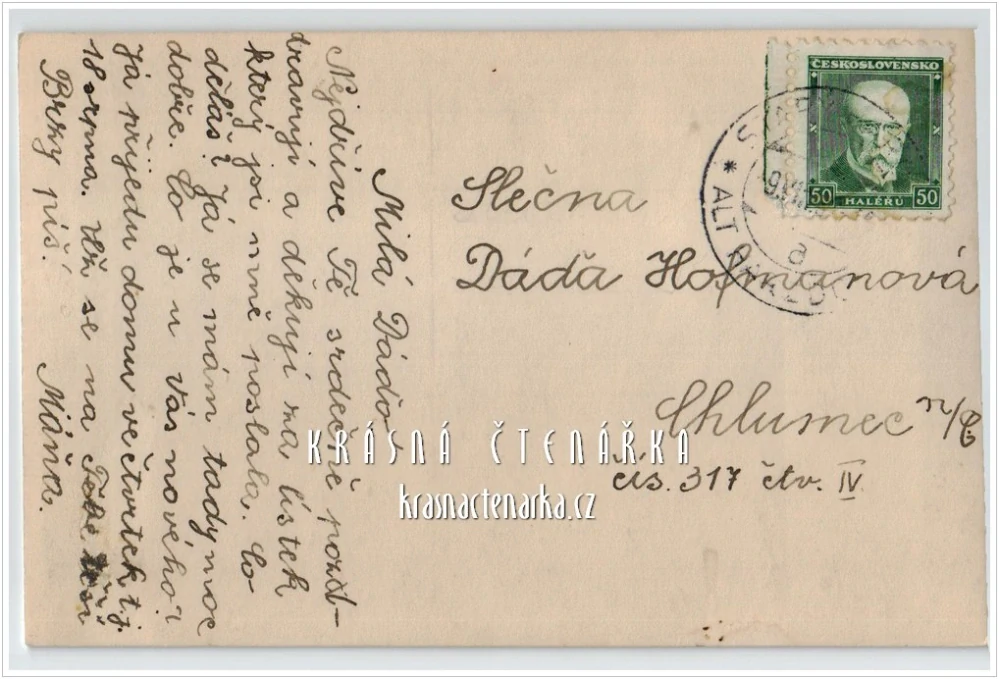 Milá Dádo
Nejdříve Tě srdečně pozd-
dravuji a děkuji za lístek
který jsi mně poslala. Co
děláš? Já se mám tady moc
dobře. Co je u Vás nového?
Já přijedu domu ve čtvrtek t.j.
18 srpna. Už se na Tebe těší
Brzy piš! Máňa.
Slečna
Dáďa Hofmanová
Chlumec n/C
čís. 317 čtv. IV
ČESKOSLOVENSKO
50 HALÉŘŮ 50
* ALT
a
KRÁSNÁ ČTENÁŘKA
krasnactenarka.cz